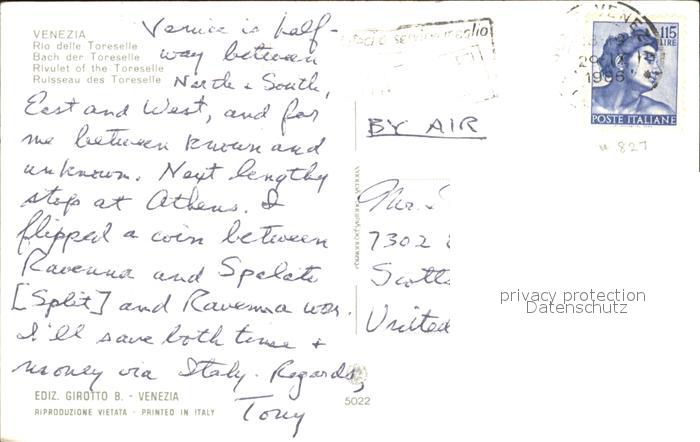 VENEZIA
Rio delle Toreselle
Bach der Toreselle
Rivulet of the Toreselle
Ruisseau des Toreselle
Venice is half-
way between
North & South,
East and West, and for
me between known and
unknown. Next lengthy
stop at Athens. I
flipped a coin between
Ravenna and Spalato
[Split] and Ravenna won.
I'll save both time &
money via Italy. Regards,
Tony
EDIZ. GIROTTO B. - VENEZIA
RIPRODUZIONE VIETATA - PRINTED IN ITALY
5022
BY AIR
Mr.
7302
Scotts
United
VENEZIA
1966
115
LIRE
POSTE ITALIANE
# 827
privacy protection
Datenschutz